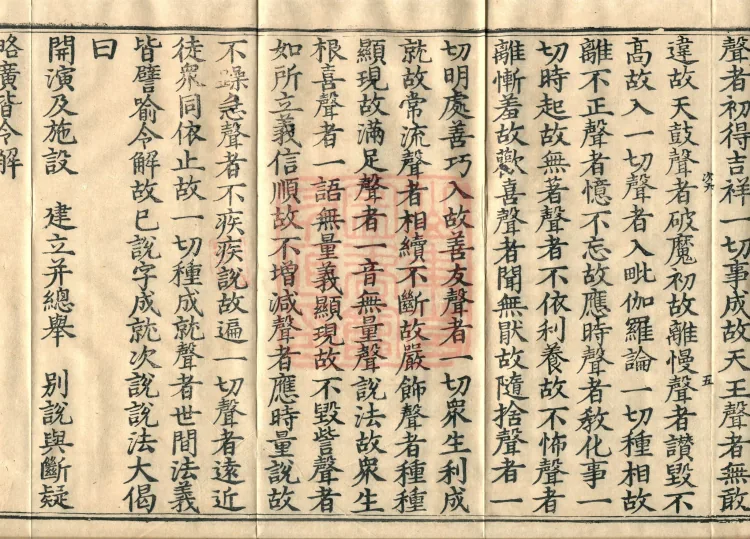 聲者初得吉祥一切事成故天王聲者無敢
違故天鼓聲者破魔初故離慢聲者讃毀不
高故入一切聲者入毗伽羅論一切種相故
離不正聲者憶不忘故應時聲者教化事一
切時起故無著聲者不依利養故不怖聲者
離慚羞故歡喜聲者聞無猒故隨捨聲者一
切明處善巧入故善友聲者一切衆生利成
就故常流聲者相續不斷故嚴飾聲者種種
顯現故滿足聲者一音無量聲説法故衆生
根喜聲者一語無量義顯現故不毀呰聲者
如所立義信順故不增減聲者應時量説故
不躁急聲者不疾疾説故遍一切聲者遠近
徒衆同依止故一切種成就聲者世間法義
皆譬喻令解故已説字成就次説説法大偈
曰
開演及施設 建立并總舉 別説與斷疑
略廣皆令解
五